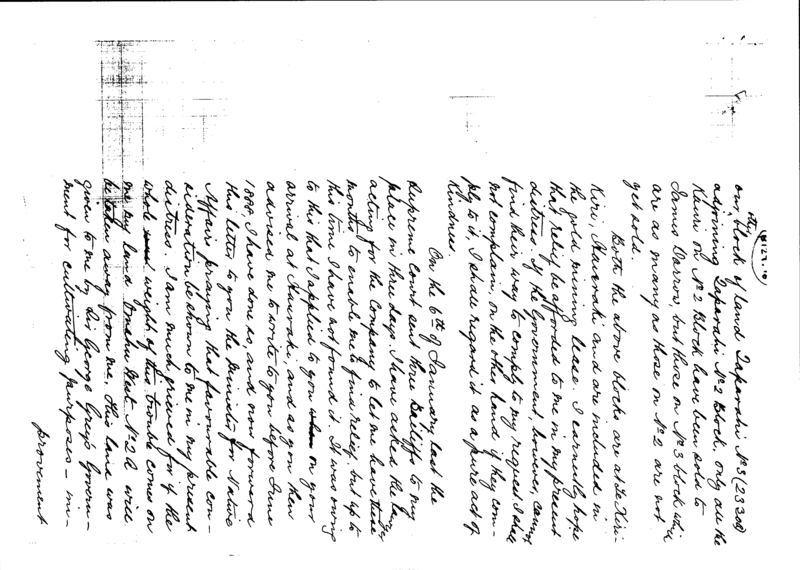 our other block of land Taparahi No 3 (23 acs)
adjoining Taparahi No 2 Block, only all the
Kauri on No 2 Block have been sold to
James Darrow, but those on No 3 block which
are as many as those on No 2 are not
yet sold.
Both the above blocks are at te Kiri-
Kiri, Hauraki and are included in
the gold mining lease. I earnestly hope
that relief be afforded to me in my present
distress. If the Government, however, cannot
find their way to comply to my request I shall
not complain, on the other hand if they com-
ply to it, I shall regard it as a pure act of
Kindness.
On the 6th of January last the
Supreme Court sent three Bailiffs to my
place in three days. I have asked the
acting for the Company to let me have three
months to enable me to find relief, but up to
this time I have not found it. It was owing
to this that I applied to you when on your
arrival at Hauraki, and as you then
advised me to write to you before June
1885, I have done so, and now forward
this letter to you the Minister for Native
Affairs praying that favourable con-
sideration be shown to me in my present
distress. I am much grieved for if the
whole weight of this trouble comes on
me my land No 2A will
be taken away from me. This land was
given to me by Sir George Grey's Govern-
ment for cultivating purposes - im-
provement